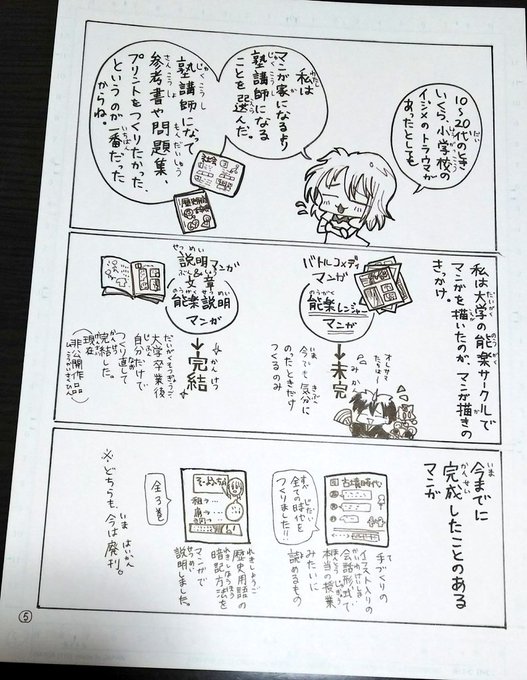 10〜20代のとき
いくら、小学校の
イジメのトラウマが
あったとしても
私は
マンガ家になるより
塾講師になる
ことを選んだ。
塾講師になって
参考書や問題集、
プリントをつくりたかった、
というのが一番だった
からね。
私は大学の能楽サークルで
マンガを描いたのが、マンガ描きの
きっかけ。
バトルコメディ
マンガ
能楽レンジャー
マンガ
→未完
今でも気分に
のったときだけ
つくるのみ
説明マンガ
&
文章
能楽説明
マンガ
→完結
大学卒業後
自分だけで
つくり直して
完結した。
現在
(非公開作品)
今までに
完成したことのある
マンガ
古墳時代
全ての時代を
つくりました!!
手づくりの
イラスト入りの
会話形式で
本当の授業
みたいに
読めるもの
全3巻
歴史用語の
暗記方法を
マンガで
説明しました。
※どちらも、今は廃刊。
⑤